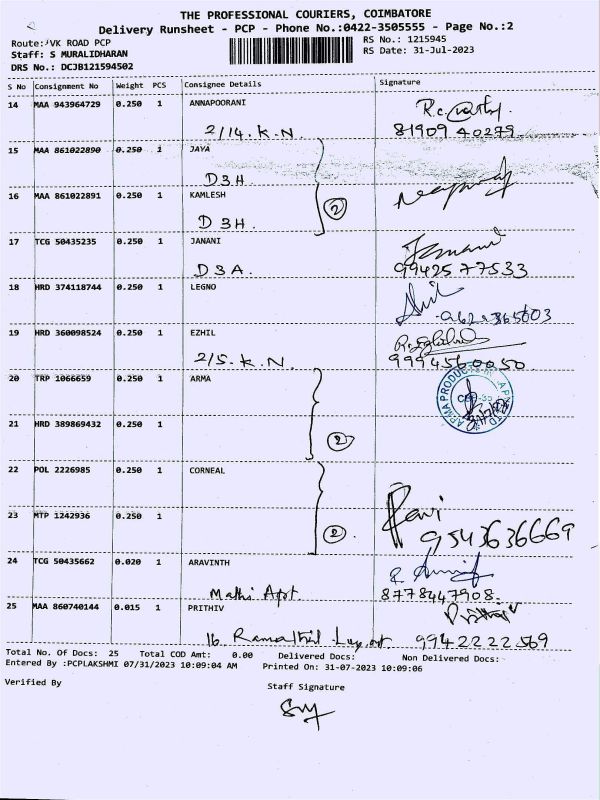 THE PROFESSIONAL COURIERS, COIMBATORE
Delivery Runsheet - PCP - Phone No.:0422-3505555 - Page No.:2
Route: VK ROAD PCP RS No.: 1215945
Staff: S MURALIDHARAN RS Date: 31-Jul-2023
DRS No.: DCJB121594502
S No Consignment No Weight PCS Consignee Details Signature
14 MAA 943964729 0.250 1 ANNAPOORANI
2/14. K.N. 81909 40279
15 MAA 861022890 0.250 1 JAYA
D3H.
16 MAA 861022891 0.250 1 KAMLESH
2
D3H.
17 TCG 50435235 0.250 1 JANANI
D3A. 9942577533
18 HRD 374118744 0.250 1 LEGNO
19 HRD 360098524 0.250 1 EZHIL
2/5. K.N. 9994560050
20 TRP 1066659 0.250 1 ARMA
21 HRD 389869432 0.250 1
2
22 POL 2226985 0.250 1 CORNEAL
23 MTP 1242936 0.250 1
2 Ravi 9543636669
24 TCG 50435662 0.020 1 ARAVINTH
Mathi Apt. 8778447908.
25 MAA 860740144 0.015 1 PRITHIV
16. 9942222569
Total No. Of Docs: 25 Total COD Amt: 0.00 Delivered Docs: Non Delivered Docs:
Entered By :PCPLAKSHMI 07/31/2023 10:09:04 AM Printed On: 31-07-2023 10:09:06
Verified By Staff Signature